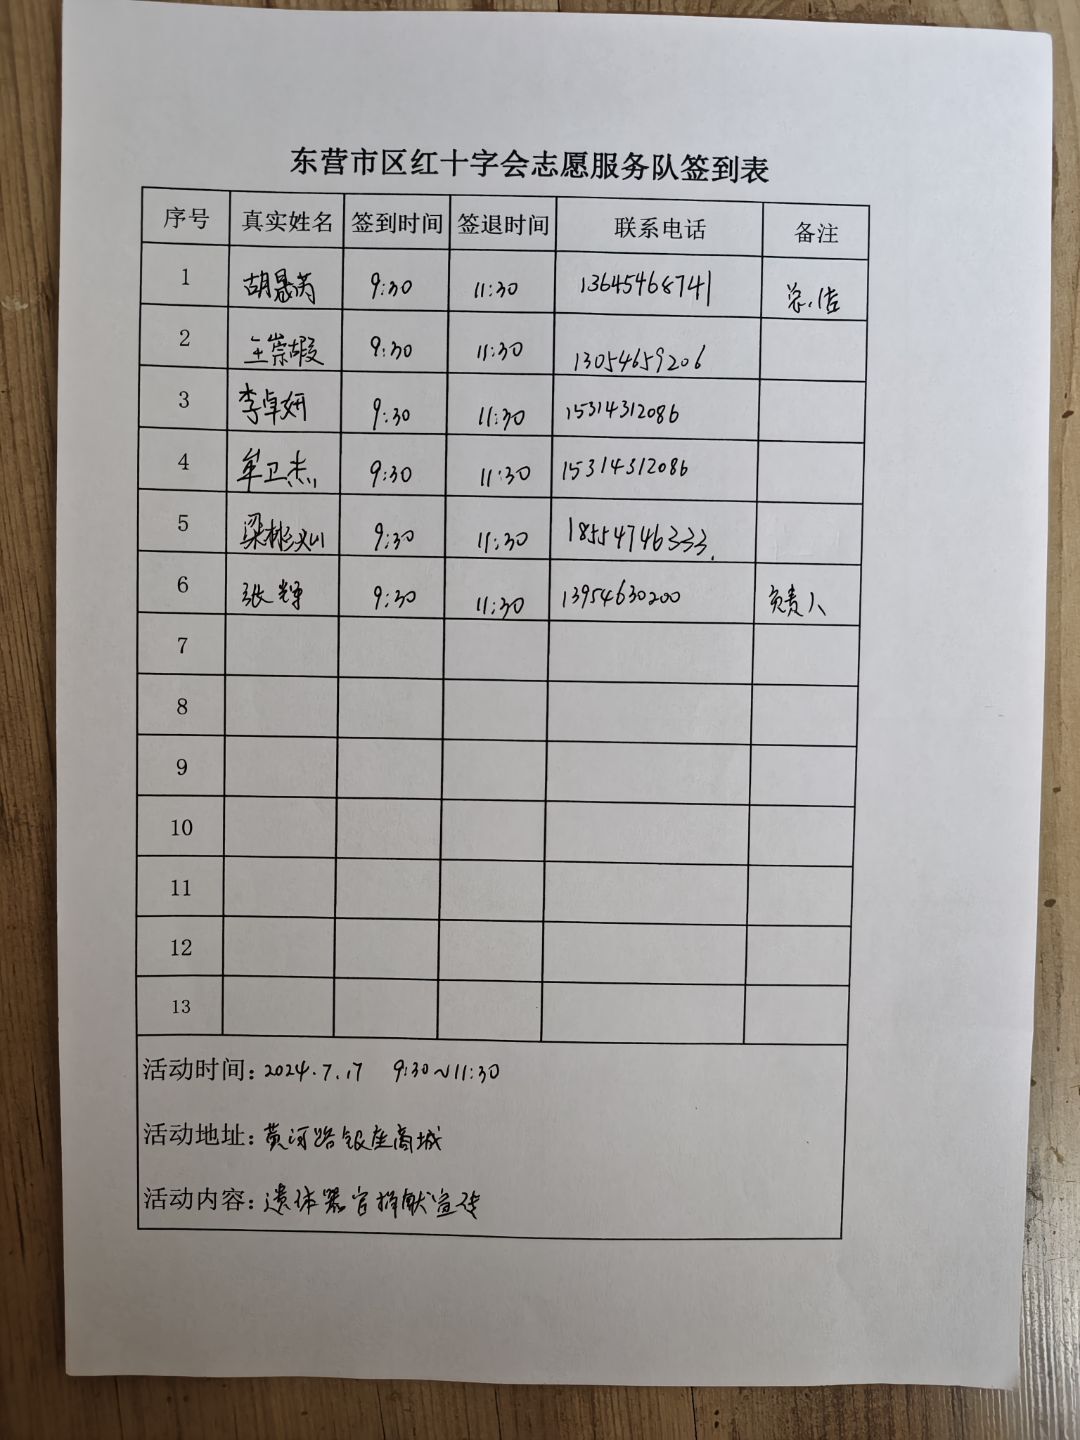 东营市区红十字会志愿服务队签到表
序号 真实姓名 签到时间 签退时间 联系电话 备注
1 胡晟芮 9:30 11:30 13645468741
2 9:30 11:30 13054659206
3 李卓妍 9:30 11:30 15314312086
4 牟卫杰 9:30 11:30 15314312086
5 9:30 11:30 18554746333
6 张辉 9:30 11:30 13954630200 负责人
7
8
9
10
11
12
13
活动时间:2024.7.17 9:30~11:30
活动地址:黄河路银座商城
活动内容:遗体器官捐献宣传